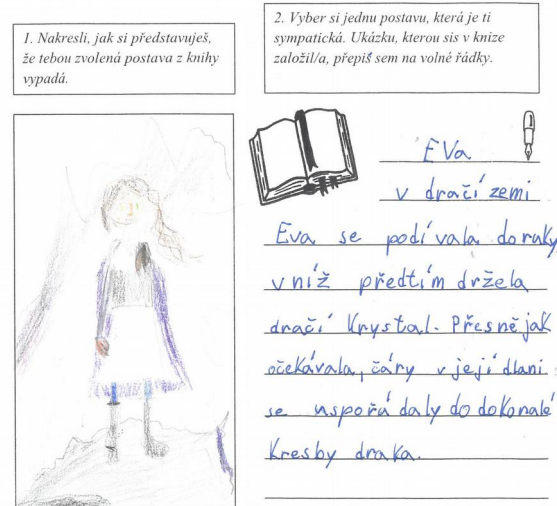 1. Nakresli, jak si představuješ,
že tebou zvolená postava z knihy
vypadá.
2. Vyber si jednu postavu, která je ti
sympatická. Ukázku, kterou sis v knize
založil/a, přepiš sem na volné řádky.
Eva
v dračí zemi
Eva se podívala do ruky,
v níž předtím držela
dračí krystal. Přesně jak
očekávala, čáry v její dlani
se uspořádaly do dokonalé
kresby draka.